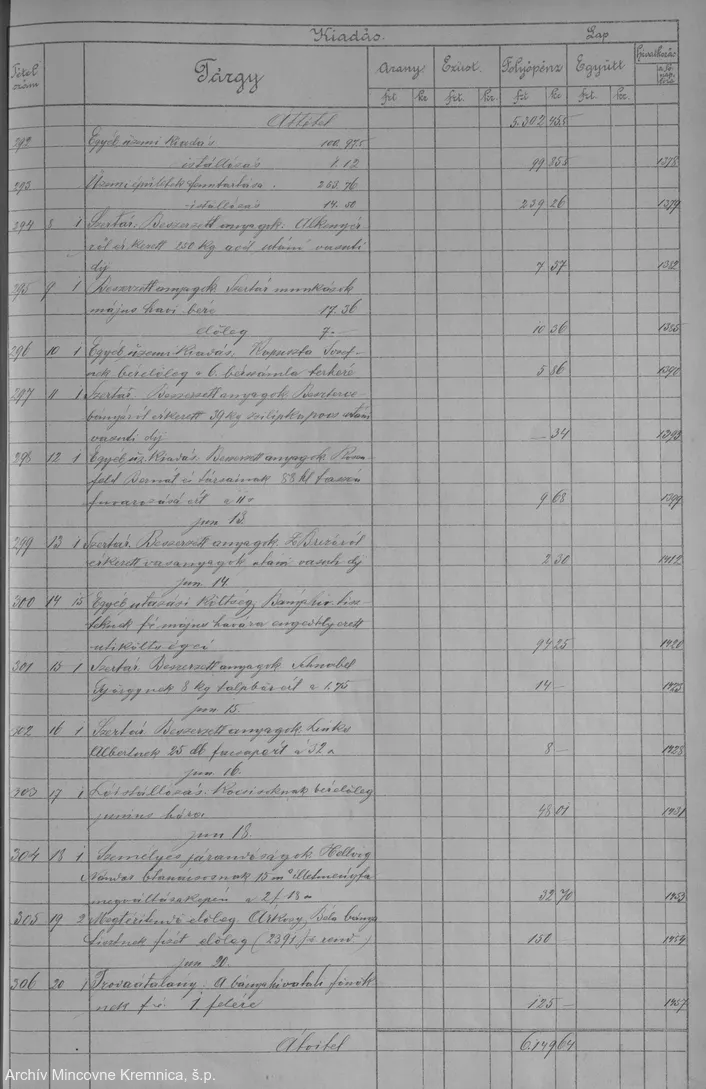 Kiadás. Lap
Tétel szám Tárgy Arany. Ezüst. Folyópénz Együtt Hivatkozás
frt kr frt. kr. frt kr frt. kr.
Áttétel 5.302 45.5
292 Egyéb üzemi kiadás 100.97.5
istállózás 1.12 99 85.5 1378
293 Üzemi épületek fenntartása. 253.76
istállózás 14.50 239 26 1379
294 8 1 Szertár. Beszerzett anyagok.
ról érkezett 250 kg acél utáni vasuti
díj 7 37 1382
295 9 1 Beszerzett anyagok. Szertár munkások
május havi bére 17.36
előleg 7.— 10 36 1385
296 10 1 Egyéb üzemi kiadás. Kapuszta Josef-
nek bérelőleg a 6. bérszámla terhére 5 86 1390
297 11 1 Szertár. Beszerzett anyagok. Besztercze-
bányáról érkezett 39 kg utáni
vasuti díj — 34 1393
298 12 1 Egyéb üz. kiadás. Beszerzett anyagok. Rosen-
feld Bernát és társainak 88 hl faszén
fuvarozásáért a 11 9 68 1399
jun 13.
299 13 1 Szertár. Beszerzett anyagok. Z. Brezóról
érkezett vasanyagok utáni vasuti díj 2 30 1412
jun. 14
300 14 15 Egyéb utazási költség. Bányahiv. tisz-
teknek f. é. május havára engedélyezett
utiköltségei 94 25 1420
301 15 1 Szertár. Beszerzett anyagok. Schnabel
Györgynek 8 kg talpbőrért a 1.75 14 — 1425
jun 15.
302 16 1 Szertár. Beszerzett anyagok. Linka
Albertnek 25 db á 32 8 — 1428
jun. 16.
303 17 1 Lóistállózás. Kocsisoknak bérelőleg
junius hóra 48 01 1431
jun 18.
304 18 1 Személyes járandóságok. Hellvig
Nándor btanácsosnak 15 m³ illetményfa
megváltásaképen a 2 f. 18 32 70 1453
305 19 2 Megtérítendő előleg. Árkosy Béla bánya
tisztnek fizet. előleg (2391/ rend) 150 — 1454
jun 20.
306 20 1 Irodaátalány. A bányahivatali főnök-
nek f. é. I felére 125 — 1457
Átvitel 6.149 64
Archív Mincovne Kremnica, š.p.